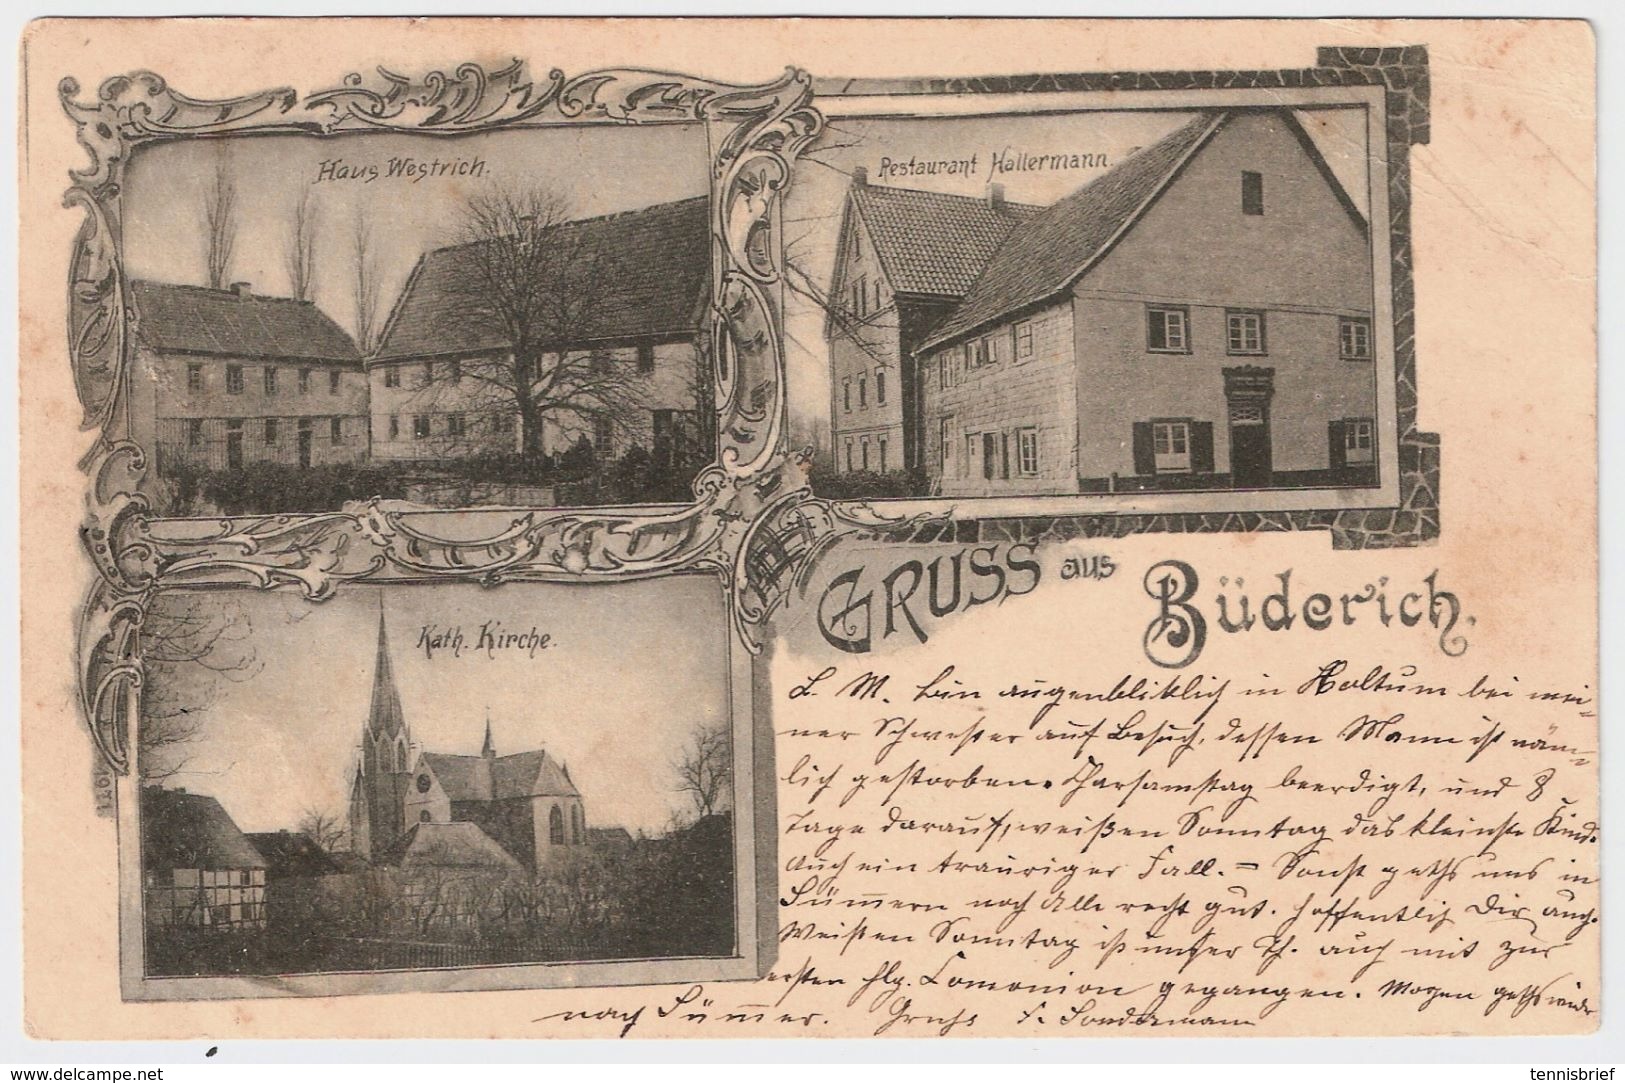 Haus Westrich.
Restaurant Hallermann.
Kath. Kirche.
1261
GRUSS aus Büderich.
L. M. bin augenbliklich in Holtum bei mei-
ner Schwester auf Besuch, dessen Mann ist näm-
lich gestorben. Charsamstag beerdigt, und 8
Tage darauf, weißen Sonntag das kleinste Kind.
Auch ein trauriger Fall. = Sonst gehts uns in
Sümmern noch Alle recht gut. hoffentlich Dir auch.
Weißen Sonntag ist unser Th. auch mit zur
ersten hlg. Comonion gegangen. Morgen gehts wieder
nach Sümmer. Gruß F. Sondermann
www.delcampe.net
tennisbrief